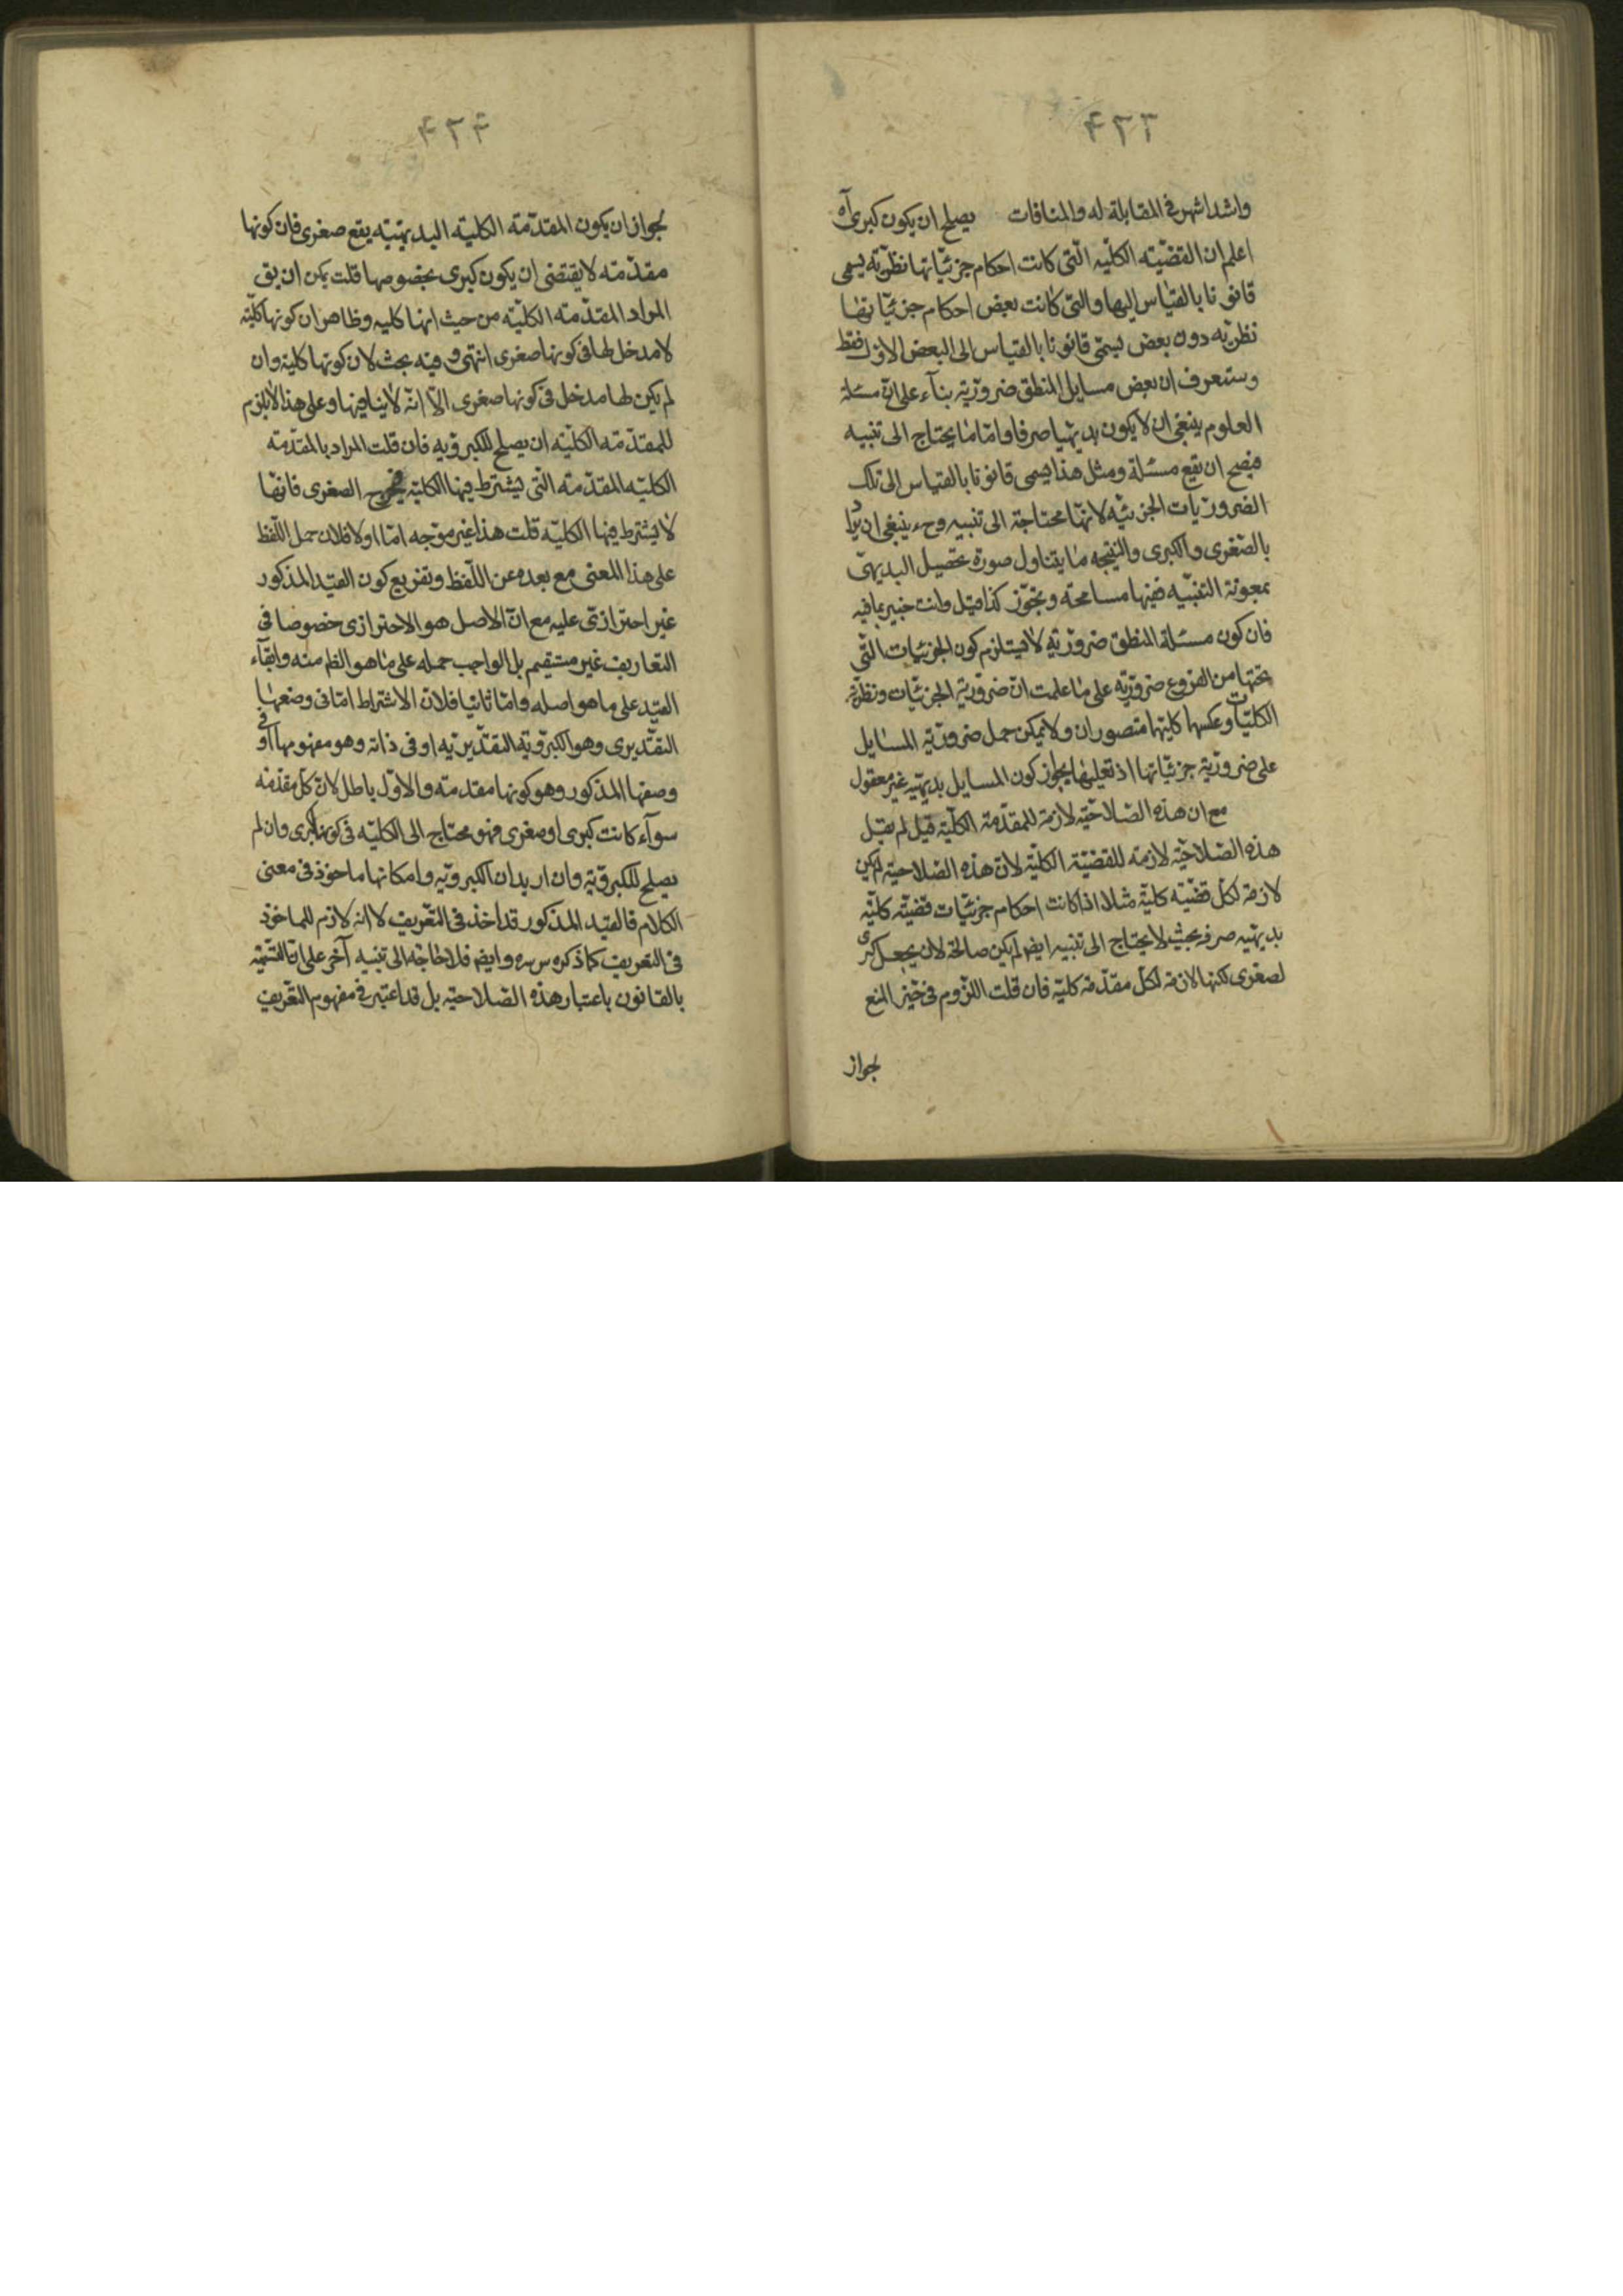 ٤٢٣
واشد اشهر فى المقابلة له والمنافات يصلح ان يكون كبرى آه
اعلم ان القضيّته الكليّه الّتى كانت احكام جزئيّاتها نظريّه يسمى
قانونا بالقياس اليها والتى كانت بعض احكام جزئيّاتها
نظريّه دون بعض يسمّى قانونا بالقياس الى البعض الاوّل فقط
وستعرف ان بعض مسايل المنطق ضروريّة بنآء على انّ مسئلة
العلوم ينبغى ان لا يكون بديهيا صرفا وامّا ما يحتاج الى تنبيه
فيصح ان يقع مسئلة ومثل هذا يسمى قانونا بالقياس الى تلك
الضروريّات الجزئيّه لانّها محتاجة الى تنبيه وح ينبغى ان يراد
بالصّغرى والكبرى والنتيجه ما يتناول صورة تحصيل البديهىّ
بمعونة التنبيه ففيها مسامحة وتجوّز كذا قيل وانت خبير بما فيه
فان كون مسئلة المنطق ضروريّة لا يستلزم كون الجزئيات التّى
تحتها من الفروع ضروريّه على ما علمت انّ ضروريّة الجزئيّات ونظريّة
الكليّات وعكسها كليهما متصوران ولا يمكن حمل ضروريّة المسايل
على ضروريّة جزئيّاتها اذ تعليلها بجواز كون المسايل بديهيّه غير معقول
مع ان هذه الصّلاحيّة لازمة للمقدّمة الكليّة قيل لم يقل
هذه الصّلاحيّة لازمة للقضيّة الكليّة لانّ هذه الصّلاحيّة لم يكن
لازمة لكلّ قضيّه كليّة مثلا اذا كانت احكام جزئيّات قضيّة كليّه
بديهيّه صرفه بحيث لا يحتاج الى تنبيه ايضا لم يكن صالحة لان يجعل كبرى
لصغرى لكنها لازمة لكلّ مقدّمة كليّة فان قلت اللزوم فى حيّز المنع
لجواز
٤٢٤
لجواز ان يكون المقدّمته الكليّه البديهيّه يقع صغرى فان كونها
مقدّمته لا يقتضى ان يكون كبرى بخصوصها قلت يمكن ان يق
المراد المقدّمته الكليّه من حيث انها كليه وظاهر ان كونها كليّة
لا مدخل لها فى كونها صغرى انتهى وفيه بحث لان كونها كلية وان
لم يكن لها مدخل فى كونها صغرى الاّ انّه لا ينافيها وعلى هذا لا يلزم
للمقدّمته الكليّه ان يصلح للكبرويّه فان قلت المراد بالمقدّمته
الكليّه المقدّمته الّتى يشترط فيها الكليّه فخرج الصغرى فانها
لا يشترط فيها الكليّه قلت هذا غير موجه امّا اولا فلان حمل اللّفظ
على هذا المعنى مع بعده عن اللّفظ وتفريع كون القيد المذكور
غير احترازىّ عليه مع انّ الاصل هو الاحترازى خصوصا فى
التعاريف غير مستقيم بل الواجب حمله على ما هو الظ منه وابقآء
القيد على ما هو اصله وامّا ثانيا فلانّ الاشتراط امّا فى وضعها
التقديرى وهو الكبرويّة التقديريّه او فى ذاته وهو مفهومها او فى
وصفها المذكور وهو كونها مقدمته والاوّل باطل لانّ كلّ مقدّمته
سوآء كانت كبرى او صغرى فهو محتاج الى الكليّه فى كونها كبرى وان لم
يصلح للكبرويّة وان اريد ان الكبرويّه وامكانها ماخوذ فى معنى
الكلام فالقيد المذكور قد اخذ فى التّعريف لا انه لازم للماخوذ
فى التعريف كما ذكره س سره وايضا فلا حاجة الى تنبيه آخر على انّ التّسميّة
بالقانون باعتبار هذه الصّلاحيّة بل قد اعتبر فى مفهوم التّعريف